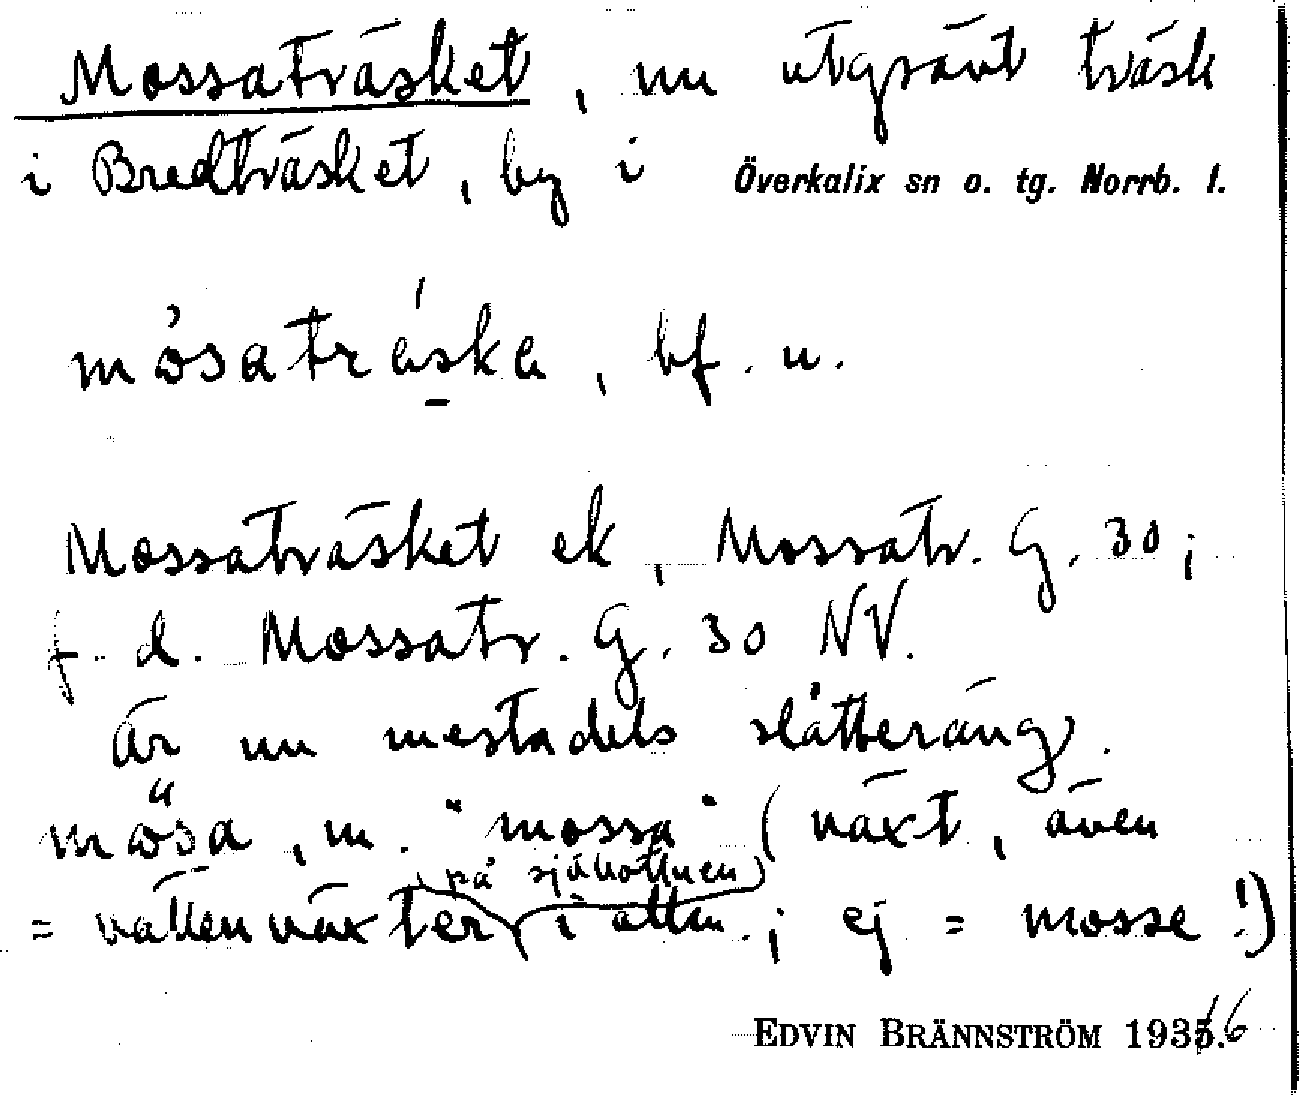 Mossaträsket, nu utgrävt träsk
i Bredträsket, by i Överkalix sn o. tg. Norrb. l.
mò̀satráska, bf. n.
Mossaträsket ek, Mossatr. G. 30;
f. d. Mossatr. G. 30 NV.
Är nu mestadels slåtteräng.
mösa, m. "mossa" (växt, även
(på sjöbottnen)
= vattenväxter i allm.; ej = mosse!)
EDVIN BRÄNNSTRÖM 1936